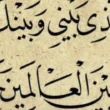 ذي بيني وبينك
العالمين